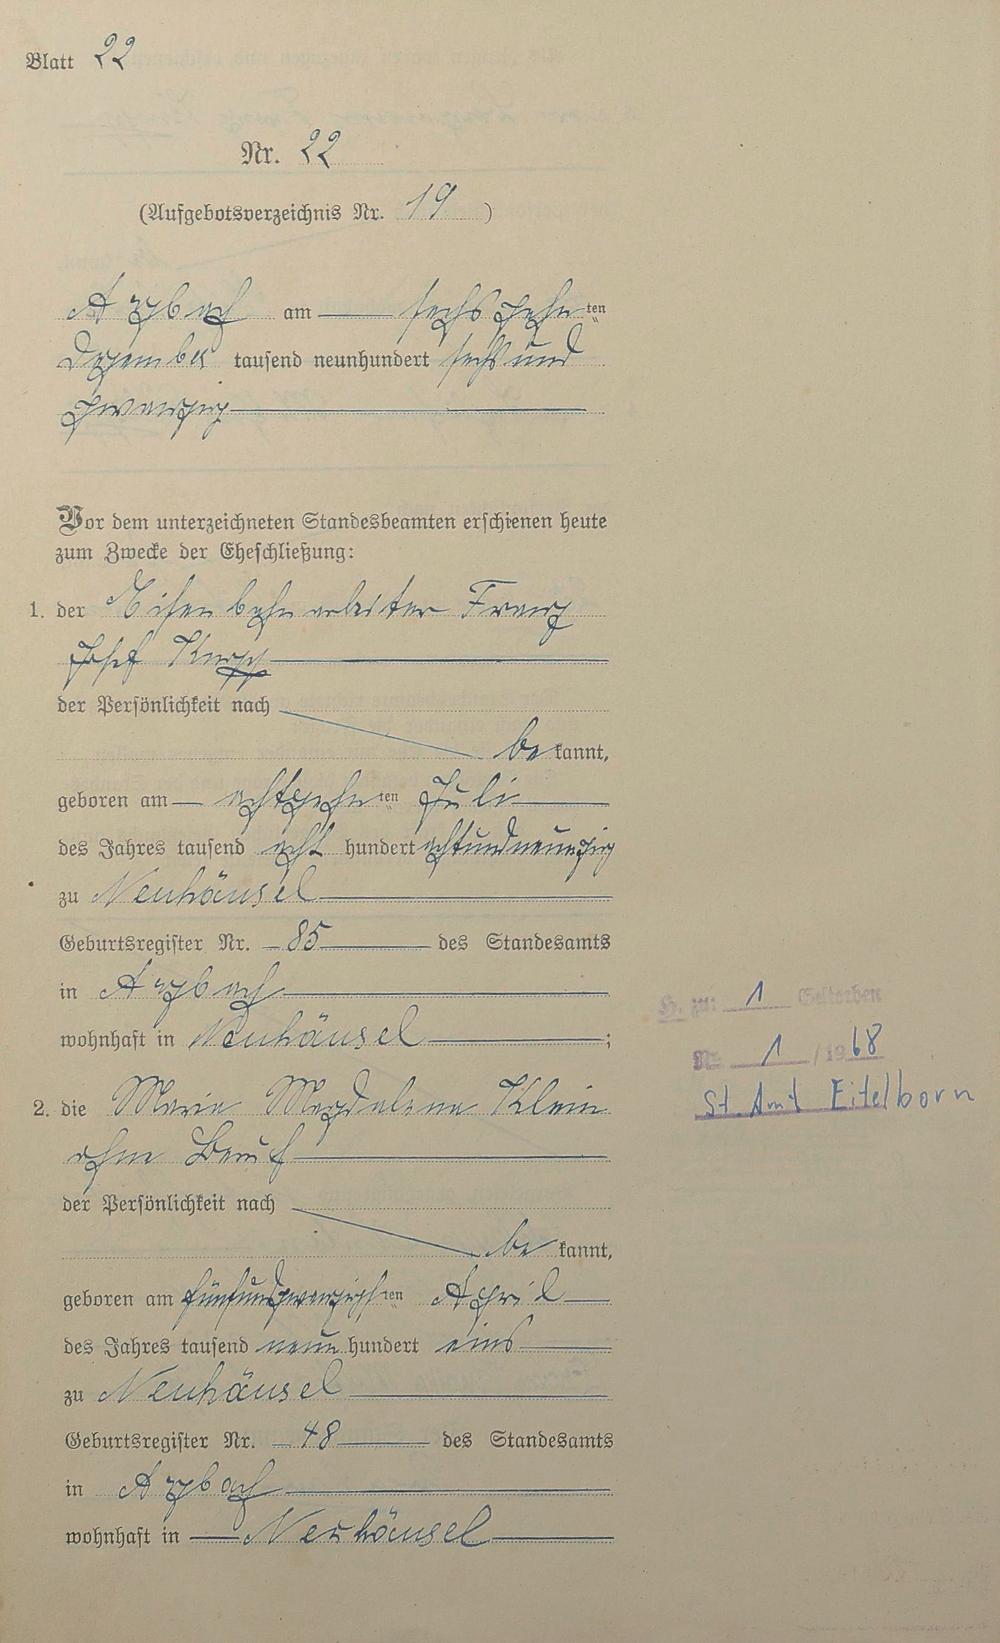 Blatt 22
Nr. 22
(Aufgebotsverzeichnis Nr. 19)
Arzbach am sechszehnten
Dezember tausend neunhundert sechsund
zwanzig
Vor dem unterzeichneten Standesbeamten erschienen heute
zum Zwecke der Eheschließung:
1. der Eisenbahnarbeiter Franz
Josef
der Persönlichkeit nach
be kannt,
geboren am achtzehnten Juli
des Jahres tausend acht hundert achtundneunzig
zu Neuhäusel
Geburtsregister Nr. 85 des Standesamts
in Arzbach
wohnhaft in Neuhäusel;
2. die Maria Magdalena Klein
ohne Beruf
der Persönlichkeit nach
be kannt,
geboren am fünfundzwanzigsten April
des Jahres tausend neun hundert eins
zu Neuhäusel
Geburtsregister Nr. 48 des Standesamts
in Arzbach
wohnhaft in Neuhäusel
H. zu: 1 Gestorben
Nr. 1 /1968
St. Amt Eitelborn